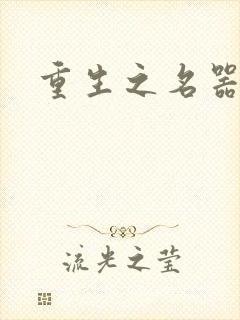 重生之名器
流光之莹